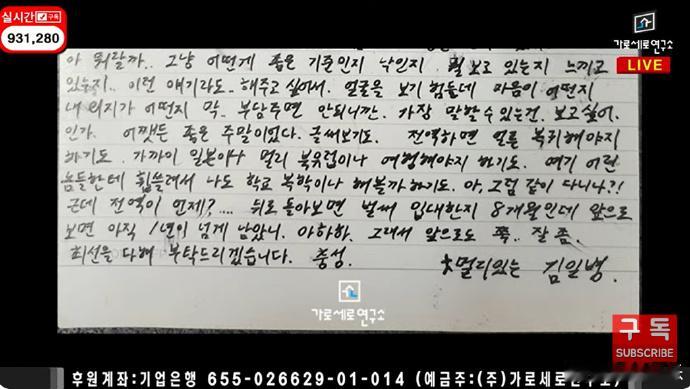 실시간 구독
931,280
가로세로연구소
LIVE
아 뭐랄까.. 그냥 어떤게 좋은 기준인지 낙인지 뭘 보고 있는지 느끼고
있는지.. 이런 얘기라도.. 해주고 싶어서. 얼굴을 보기 힘들데 마음이 어떤지
내 의지가 어떤지 막.. 부담주면 안되니깐. 가장 말할수 있는건. 보고싶어.
인가. 어쨋든 좋은 주말이었다. 글써보기도. 전역하면 얼른 복귀해야지
하기도. 가까이 일본이나 멀리 북유럽이나 여행해야지 하기도. 여기 어린
놈들한테 휩쓸려서 나도 학교 복학이나 해볼까 하기도. 아, 그럼 같이 다니나?!
근데 전역이 언제?.... 뒤로 돌아보면 벌써 입대한지 8개월인데 앞으로
보면 아직 1년이 넘게 남았니. 아하하. 그래서 앞으로도 쭉.. 잘 좀.
최선을 다해 부탁드리겠습니다. 충성. 멀리있는 김일병.
가로세로연구소
구독
SUBSCRIBE
후원계좌:기업은행 655-026629-01-014 (예금주:(주)가로세로연구소)